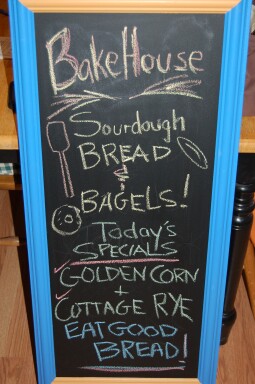 BakeHouse
Sourdough
BREAD
&
BAGELS!
Today's
SPECIALS
GOLDEN CORN
+
COTTAGE RYE
EAT GOOD
BREAD!